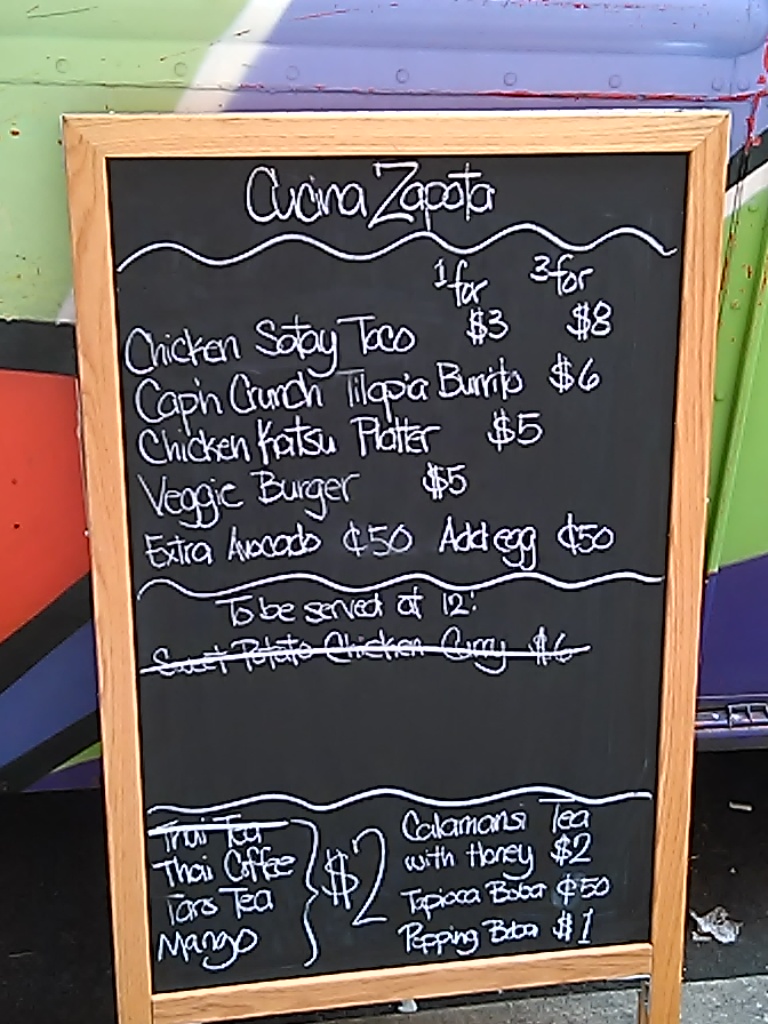 Cucina Zapata
1 for 3 for
Chicken Satay Taco $3 $8
Cap'n Crunch Tilapia Burrito $6
Chicken Katsu Platter $5
Veggie Burger $5
Extra Avocado ¢50 Add egg ¢50
To be served at 12:
Sweet Potato Chicken Curry $6
Thai Tea
Thai Coffee
Taro Tea
Mango
$2
Calamansi Tea
with Honey $2
Tapioca Boba ¢50
Popping Boba $1